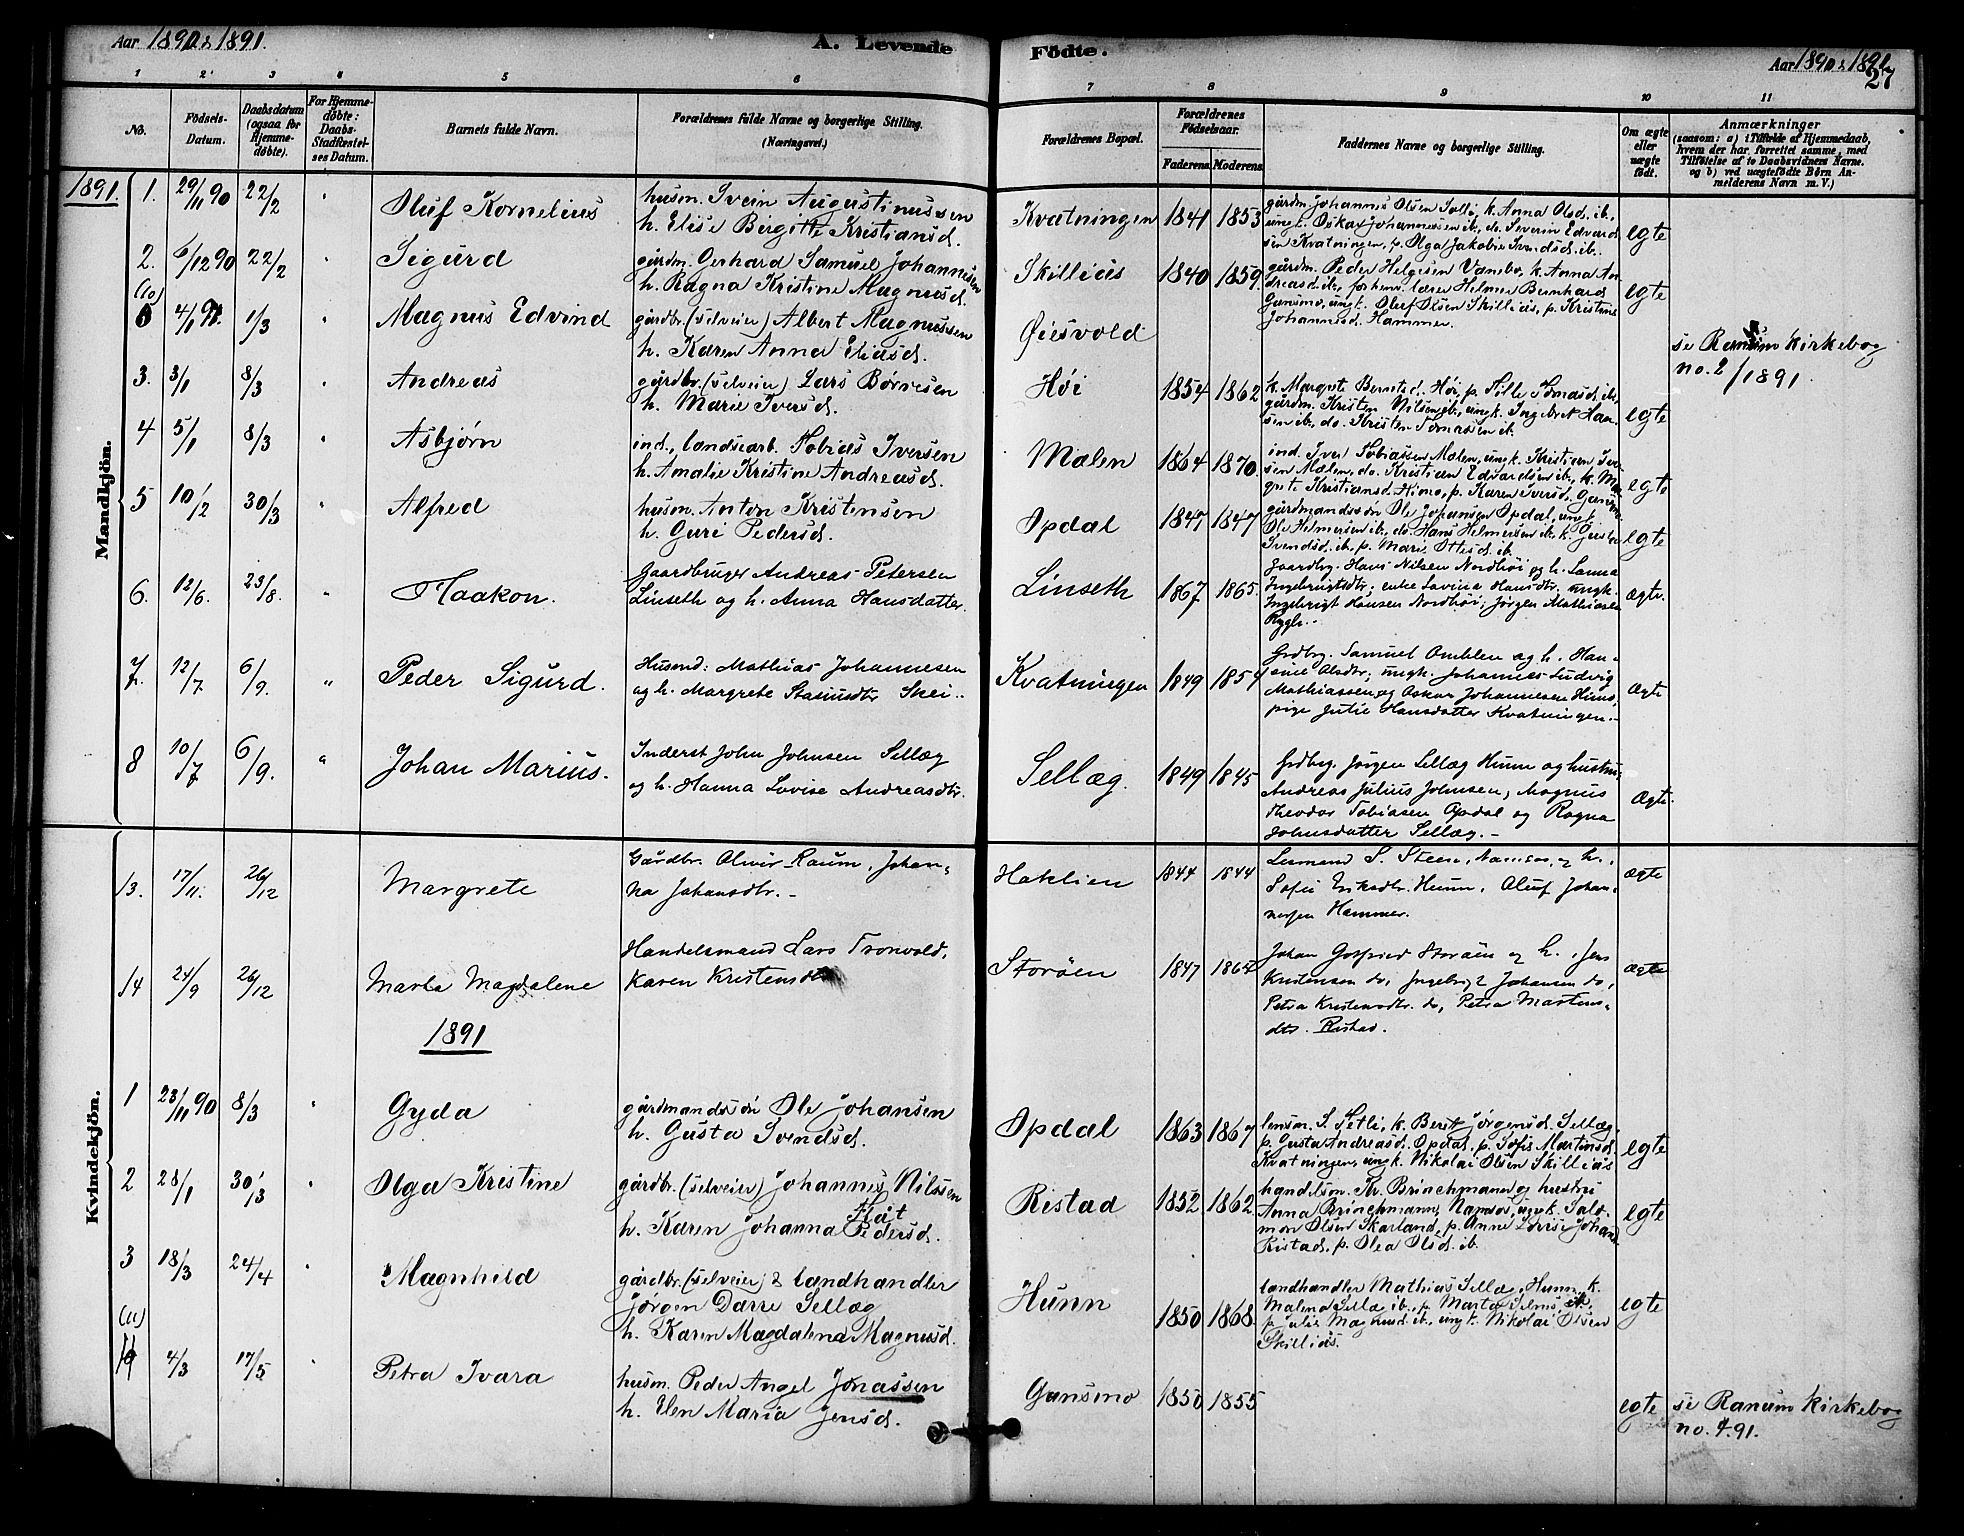 Aar 1890 & 1891.
A. Levende Födte.
Aar 1890 & 1891
27
1 2 3 4 5 6 7 8 9 10 11
No.
Födsels-
Datum.
Daabsdatum
(ogsaa for
Hjemme-
döbte).
For Hjemme-
döbte:
Daabs-
Stadfæstel-
ses Datum.
Barnets fulde Navn.
Forældrenes fulde Navne og borgerlige Stilling.
(Næringsvei.)
Forældrenes Bopæl.
Forældrenes
Födselsaar.
Faderens. Moderens.
Faddernes Navne og borgerlige Stilling.
Om ægte
eller
uægte
födt.
Anmærkninger
(saasom: a) i Tilfælde af Hjemmedaab,
hvem der har forrettet samme, med
Tilföielse af to Daabsvidners Navne.
og b) ved uægtefödte Börn An-
melderens Navn m. V.)
Mandkjön.
1891.
1. 29/11 90 22/2 " Oluf Kornelius
husm. Svein Augustinussen
h. Elise Birgitte Kristiansd.
Kvatningen 1841 1853
gårdm. Johannes Olsen Sælli, k. Anna Olsd. ib.,
ungk. Oskar Johannessen ib., do. Severin Edvard
sen Kvatningen, p. Olga Jakobie Svendsd. ib.
egte
2. 6/12 90 22/2 " Sigurd
gårdm. Gerhard Samuel Johannessen
h. Ragna Kristine Magnusd.
Skilliås 1840 1859
gårdm. Peder Helgesen Vambo, k. Anna An
dreasd. ib., forhenv. lærer Helmer Bernhard
Gansmo, ungk. Oluf Olsen Skilliås, p. Kristine
Johannesd. Hammer.
egte
(10)
4/1 91. 1/3 " Magnus Edvind
gårdbr. (selveier) Albert Magnussen
h. Karen Anna Eliasd.
Øiesvold
se Ranum kirkebog
no. 2/1891.
3. 3/1 8/3 " Andreas
gårdbr. (selveier) Lars Børresen
h. Marie Iversd.
Høi 1854 1862
k. Margrete Berntsd. Høi, p. Sille Tomasd. ib.,
gårdm. Kristen Nilsen ib., ungk. Han
sen ib., do. Kristen Tomassen ib.
egte
4 5/1 8/3 " Asbjørn
ind., landsarb. Tobias Iversen
h. Amalie Kristine Andreasd.
Mælen 1864 1870
ind. Iver Tobiassen Mælen, ungk. Kristian Iver
sen Mælen, do. Kristian Edvardsen ib., k. Mar
grete Kristiansd. Himo, p. Karen Iversd. Gansmo
egte
5 10/2 30/3 " Alfred
husm. Anton Kristensen
h. Guri Pedersd.
Opdal 1847 1847
gårdmandssøn Ole Johansen Opdal, ungk.
Ole Helmersen ib., do. Hans Helmersen ib., k. Gusta
Svendsd. ib., p. Marie Ottesd. ib.
egte
6. 12/6. 23/8. " Haakon.
Gaardbruger Andreas Petersen
Linseth og h. Anna Hansdatter.
Linseth 1867 1865.
Gaardbg. Hans Nilsen Nordhöi og h. Sanna
Ingebrigtsdtr, enke Lovina Hansdtr. ungk.
Ingebrigt Hansen Nordhöi, Jörgen Mathiasen
Rygh.-
ægte.
7. 12/7 6/9. " Peder Sigurd.
Husmd: Mathias Johannesen
og h. Margrete Skei..
Kvatningen 1849 1854
Grdbg. Samuel Omhlen og h. Han-
sine Olsdtr; ungk. Johannes Ludvig
Mathiassen og Oskar Johannesen Hunn,
pige Julie Hansdatter Kvatningen.-
Ægte
8 10/7 6/9. " Johan Marius.
Inderst John Johnsen Sellæg
og h. Hanna Lovise Andreasdtr.
Sellæg. 1849 1845
Grdbg. Jørgen Sellæg Hunn og hustru,
Andreas Julius Johnsen, Magnus
Theodor Tobiasen Opdal og Ragna
Johnsdatter Sellæg.-
Ægte.
Kvindekjön.
13. 17/11. 26/12 Margrete
Gårdbr. Oliver Raum, Johan-
na Johansdtr.-
Haklien 1844 1844
Lensmand S. Steen, Namsos, og h.,
Sofie Eriksdtr. Hunn, Oluf Johan-
nessen Hammer.
ægte
14 24/9 26/12 Marta Magdalene
Handelsmand Lars Tronvold,
Karen Kristensdtr
Storöen 1847 1864
Johan Gotfried Storöen og h., Jens
Kristensen do, Ingebrigt Johansen do,
Petra Kristensdtr. do, Petra Martens-
dtr. Ristad.
ægte
1891
1 23/11 90 8/3 " Gyda
gårdmandssøn Ole Johansen
h. Gusta Svendsd.
Opdal 1863 1867
lensm. S. Setli, k. Berit Jørgensd. Sellæg,
p. Gusta Andreasd. Opdal, p. Sofie Martinsd.
Kvatningen, ungk. Nikolai Olsen Skilliås
egte
2 28/1 30/3 " Olga Kristine
gårdbr. (selveier) Johannes Nilssen
Flåt
h. Karen Johanna Pedersd.
Ristad 1852 1862
handelsm. Kr. Brinchmann og hustru
Anna Brinchmann, Namsos, ungk. Salo
mon Olsen Skarland, p. Anne Lovise Johans
Ristad, p. Olea Olsd. ib.
egte
3 18/3 24/4 " Magnhild
gårdbr. (selveier) & landhandler
Jørgen Darre Sellæg
h. Karen Magdalena Magnusd.
Hunn 1850 1868.
landhandler Mathias Sellæ, Hunn, k.
Malena Sellæ ib., p. Marta ib.,
p. Julie Magnusd. ib., ungk. Nikolai Olsen
Skilliås.
egte
(11)
4/3 17/5 " Petra Ivara
husm. Peder Angel Jonassen
h. Elen Maria Jensd.
Gansmo 1850 1855
egte
se Ranum kirkebog
no. 4. 91.